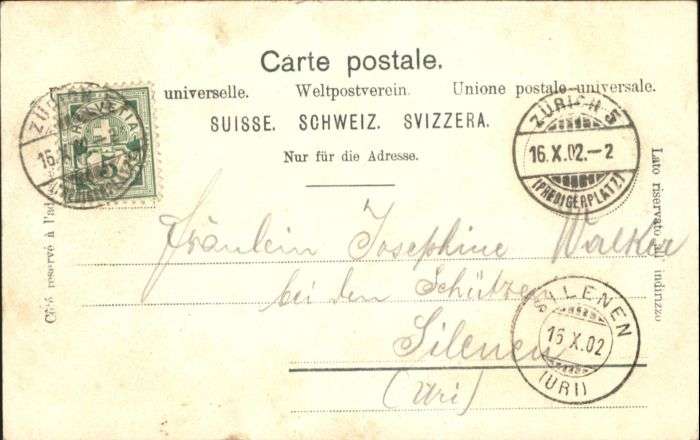 Carte postale.
universelle. Weltpostverein. Unione postale universale.
SUISSE. SCHWEIZ. SVIZZERA.
Nur für die Adresse.
Côté reservé à l'adresse
Lato riservato all indirizzo
HELVETIA
5
ZÜRICH
16.X.
ZÜRICH 5
16.X.02.–2
(PREDIGERPLATZ)
Fräulein Josephine Walker
bei den Schützen
Silenen
(Uri)
SILENEN
16 X.02
(URI)